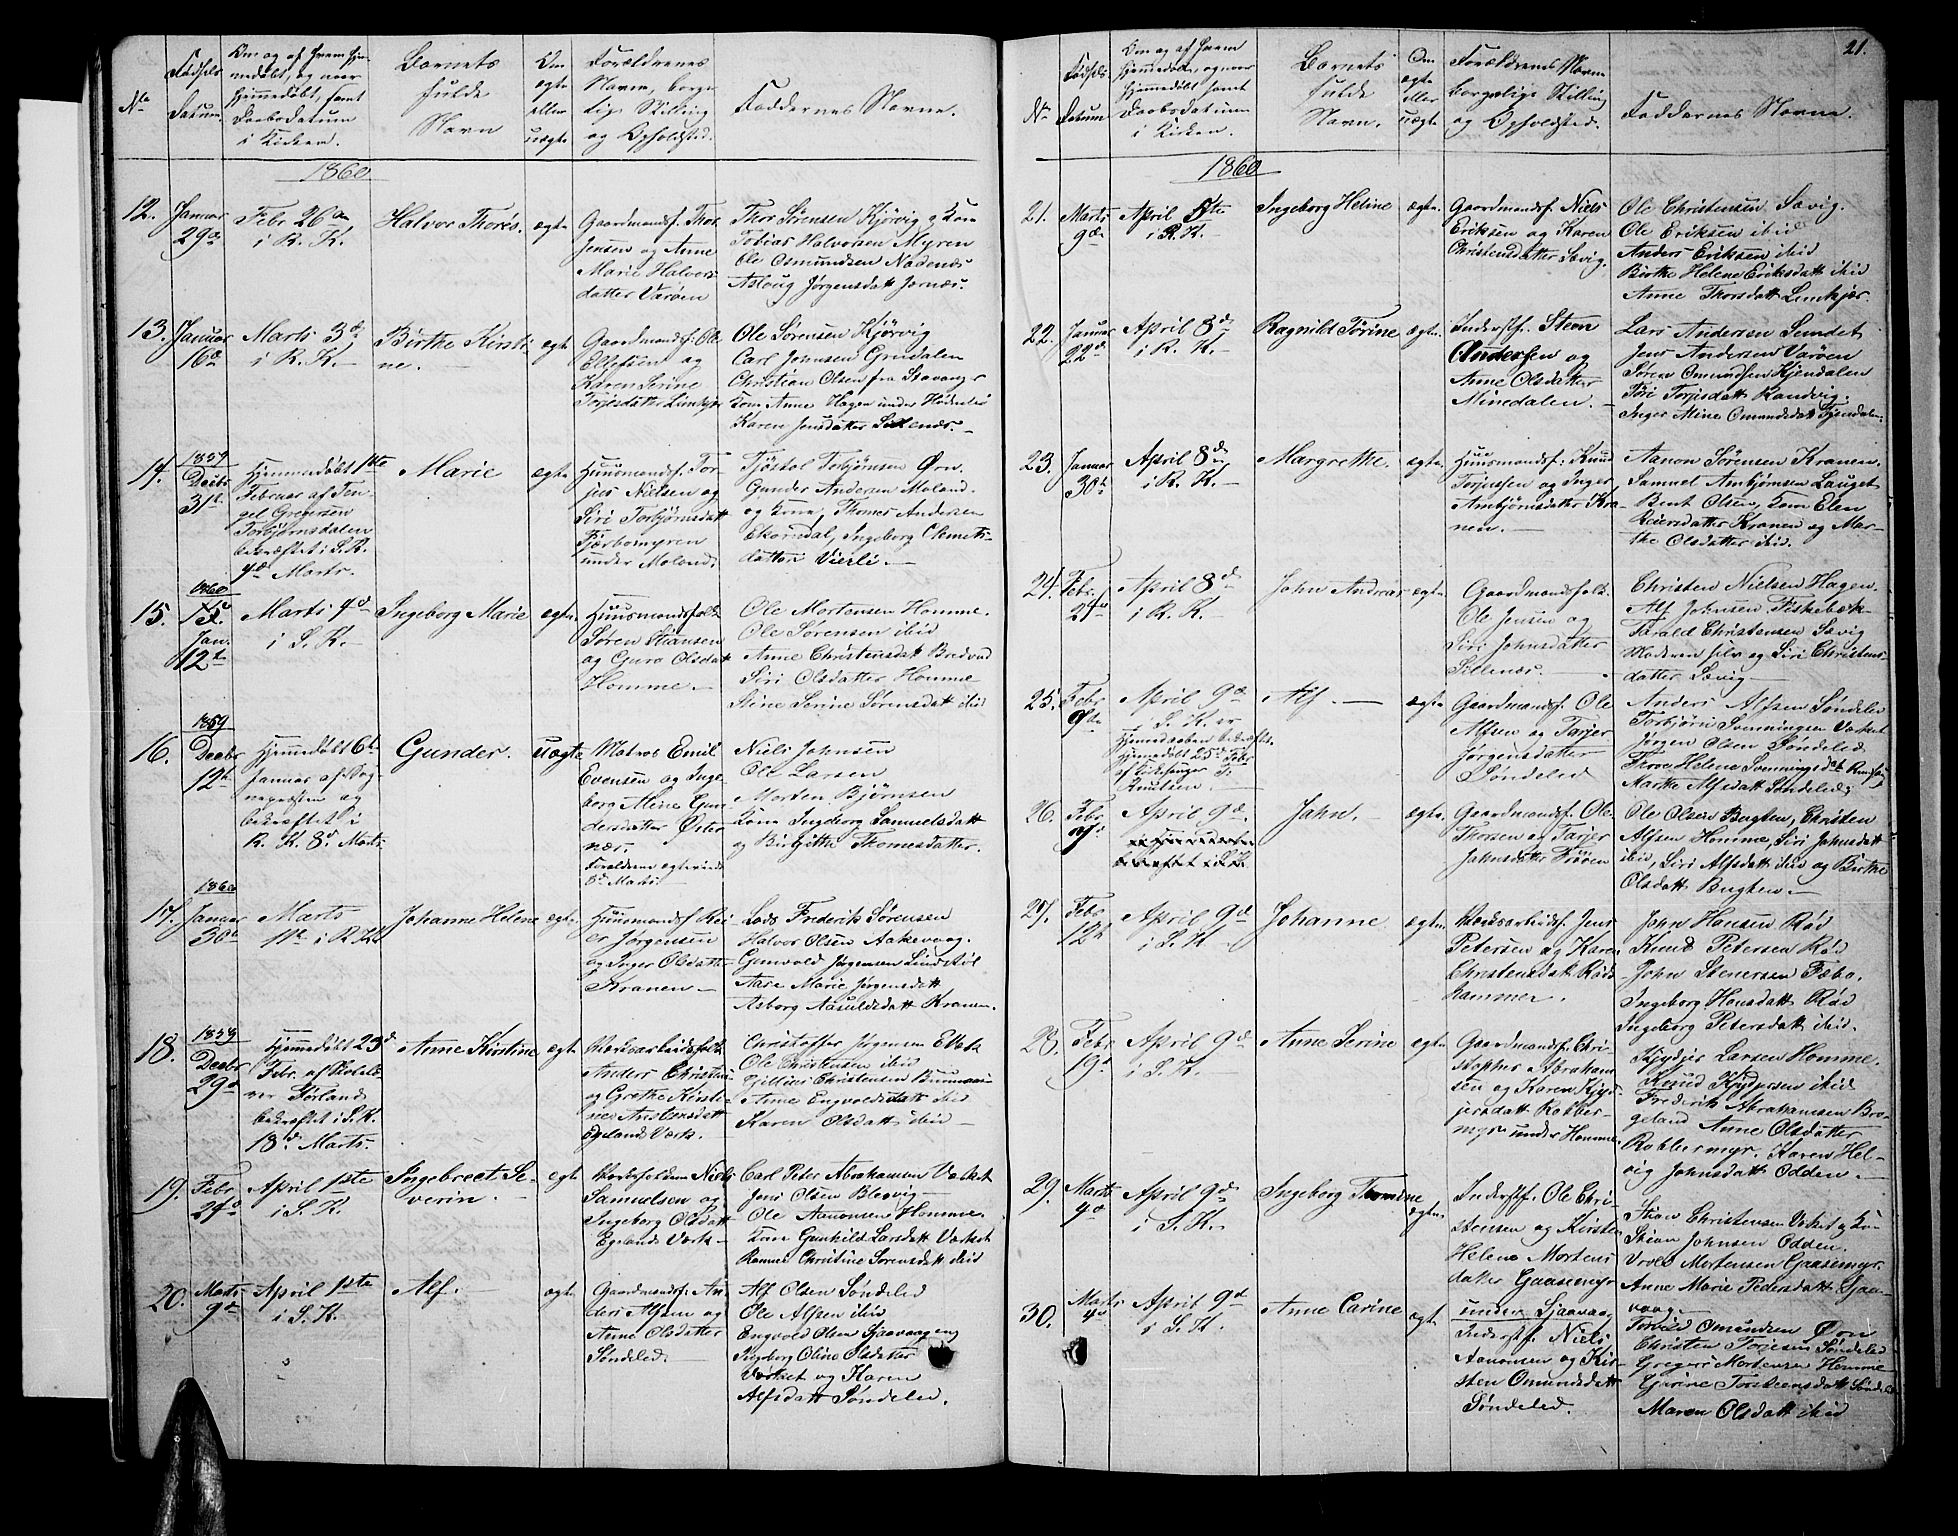 No
Fødsels
Datum.
Om og af hvem hjem-
medøbt, og naar
hjemmedøbt, samt
Daabsdatum
i Kirken.
Barnets
fulde
Navn
Om
ægte
eller
uægte
Forældrenes
Navn, borger-
lig Stilling
og Opholdsted.
Faddernes Navne.
1860
12.
Januar
29de
Febr 26de
i R. K.
Halvor Thorés.
ægte
Gaardmandsf. Thor
Jensen og Anne
Marie Halvors
datter Varøen
Thor Sørensen Kjørvig & Kone
Tobias Halvorsen Myren
Ole Osmundsen Nødenes
Asloug Jørgensdatt Jernæs.
13.
Januar
16de
Marts 3de
i R. K.
Birthe Kirsti-
ne.
ægte
Gaardmandsf. Ole
Ellefsen og
Karen Serine
Torjesdatter Limkjær
Ole Sørensen Kjørvig
Carl Johnsen Grindalen
Christian Olsen fra Stavanger
Kone Anne Hagen under Hødnebø
Karen Jensdatter Sillenæs.
14.
1859
Decbr
31te
Hjemmedøbt 1ste
Februar af Ten-
gel Gregersen
Torbjørnsdalen
bekræftet i S. K.
4de Marts.
Marie
ægte
Huusmandsf. Tor-
jus Nielsen og
Siri Torbjørnsdatt
Tjærbomyren
under Moland.
Tjøstol Torbjørnsen Ørn.
Gunder Andersen Moland.
og Kone, Thomes Andersen
Ekorndal, Ingeborg Clemets-
datter Vierli.
1860
15.
Jan.
12te
Marts 4de
i S. K.
Ingeborg Marie
ægte
Huusmandsfolk
Søren Stiansen
og Guro Olsdatt
Homme.
Ole Mortensen Homme.
Ole Sørensen ibid
Anne Christensdatt Bredvad
Siri Olsdatter Homme
Stine Serine Sørensdatt ibid
1859
16.
Decbr
12te
Hjemmedøbt 6te
Januar af Sog-
nepræsten og
bekræftet i
R. K. 8de Marts
Gunder.
uægte
Matros Emil
Evensen og Inge-
borg Mine Gun-
dersdatter Øster
næs.
Forældrene ægteviede
8de Marts.
Niels Johnsen
Ole Larsen
Morten Bjørnsen
Kone Ingeborg Samuelsdatt
og Birgitte Thomesdatter.
1860
17.
Januar
30te
Marts
11te i R. K.
Johanne Helene
ægte
Huusmandsf. Rei-
er Jørgensen
og Inger Olsdatter
Kranen
Lods Frederik Sørensen
Halvor Olsen Aakevaag.
Gunvold Jørgensen Lindstøl
Aase Marie Jørgensdatt
Asborg Aasuldsdatt Kranen.
18.
1859
Decbr
29de
Hjemmedøbt 23de
Febr. af Skolelæ-
rer Førland
bekræftet i S. K.
18de Marts.
Anne Kirstine
ægte
Værksarbeidsfolk
Anders Christens
og Grethe Kirsti-
ne Anstensdatt
Egelands Værk.
Christoffer Jørgensen
Ole Christensen ibid
Christensen
Anne Engvoldsdatt ibid
Karen Olsdatt ibid
19.
Febr
24de
April 1ste
i S. K.
Ingebrect Se-
verin.
ægte
Niels
Samuelsen og
Ingeborg Olsdatt
Egelands Værk
Carl Peter Abrahamsen Værket
Jens Olsen Blegvig
Ole Aanonsen Homme.
Kone Gunhild Larsdatt Værket
Christine Sørensdatt ibid
20.
Marts
9de
April 1ste
i S. K.
Alf.
ægte
Gaardmandsf. An-
ders Alfsen og
Anne Olsdatter
Søndeled.
Alf Olsen Søndeled
Ole Alfsen ibid
Engvold Olsen Sjaavaag eng
Ingeborg Oline Olsdatter
Værket og Karen
Alfsdatt Søndeled.
21.
No
Fødsels
Datum
Om og af hvem
hjemmedøbt, og naar
hjemmedøbt samt
Daabsdatum
i Kirken.
Barnets
fulde
Navn.
Om
ægte
eller
uægte
Forældrenes Navne
borgerlige Stilling
og Opholdsted.
Faddernes Navne.
1860
21.
Marts
9de
April 5te
i R. K.
Ingeborg Heline
ægte.
Gaardmandsf. Niels
Eriksen og Karen
Christensdatter Sævig.
Ole Christensen Sævig.
Ole Eriksen ibid
Anders Eriksen ibid
Birthe Helene Eriksdatt ibid
Anne Thorsdatt Limkjær.
22.
Januar
22de
April 8de
i R. K.
Ragnild Tørine
ægte.
Inderstf. Steen
Andersen og
Anne Olsdatter
Minedalen.
Lars Andersen Sundet
Jens Andersen Varøen
Søren Omundsen Kjendalen
Tøri Torjesdatt Randvig.
Inger Mine Omundsdatt Kjendalen.
23.
Januar
30te
April 8de
i R. K.
Margrethe.
ægte.
Huusmandsf. Knud
Torjussen og Inger
Ambjørnsdatter Kra-
nen.
Aanon Sørensen Kranen.
Samuel Ambjørnsen Lauget
Bent Olsen, Kone Elen
Reiersdatter Kranen og Mar-
the Olsdatter ibid.
24.
Febr.
27de
April 8de
i R. K.
John Andreas
ægte.
Gaardmandsfolk.
Ole Jensen og
Siri Johnsdatter
Sillenæs.
Christen Nielsen Hagen
Alf Johnsen Fiskebæk
Tarald Christensen Sævig
Moderen selv og Siri Christens-
datter Sævig
25.
Febr
9de
April 9de
i S. K. er
Hjemmedaaben bekræftet.
Hjemmedøbt 25de Febr
af Kirkesanger T.
Knutsen.
Alf.
ægte
Gaardmandsf. Ole
Alfsen og Tarjer
Jørgensdatter
Søndeled
Anders Alfsen Søndeled
Torbjørn Svenningsen Værket
Jørgen Olsen Søndeled
Thore Helene Svenningsdatt
Marthe Alfsdatt Søndeled
26.
Febr
April 9de
Jahn.
ægte.
Gaardmandsf. Ole
Thorsen og Tarjer
Jahnsdatter Frøen
Ole Olsen Bugten, Christen
Alfsen Homme, Siri Jahnsdatt
ibid, Siri Alfsdatt ibid og Birthe
Olsdatt Bugten.
27.
Febr
12te
April 9de
i S. K.
Johanne
ægte.
Værksarbeidsf. Jens
Petersen og Karen
Christensdatt Røds
hammer.
John Hansen Rød
Knud Petersen Rød
John Stenersen Fæbo.
Ingeborg Hansdatt Rød
Ingeborg Petersdatt ibid.
28.
Febr
19de
April 9de
i S. K.
Anne Serine
ægte.
Gaardmandsf. Chri-
stopher Abraham-
sen og Karen Kjyd-
jersdatt Robber-
myr under Homme
Kjydjer Larsen Homme.
Knud Kjydjersen ibid
Frederik Abrahamsen Bro-
geland Anne Olsdatter
Robbermyr. Karen Hel-
vig Johnsdatt Odden.
29.
Marts
4de
April 9de
i S. K.
Ingeborg Thomine
ægte.
Inderstf. Ole Chri-
stensen og Kirsten
Helene Mortens
datter Gaasemyr
under Sjaavaag
Stian Christensen Værket & Ko-
Stian Johnsen Odden.
Mortensen Gaasemyr.
Anne Marie Pedersdatt Sjaa-
vaag.
30.
Marts
4de
April 9de
i S. K.
Anne Carine
ægte.
Inderstf. Niels
Aanonsen og Kir-
sten Omundsdatt
Søndeled.
Omundsen Øen
Christen Torjesen Søndeled
Gregers Mortensen Homme
Gurine Torstensdatt Søndeled
Maren Olsdatt ibid